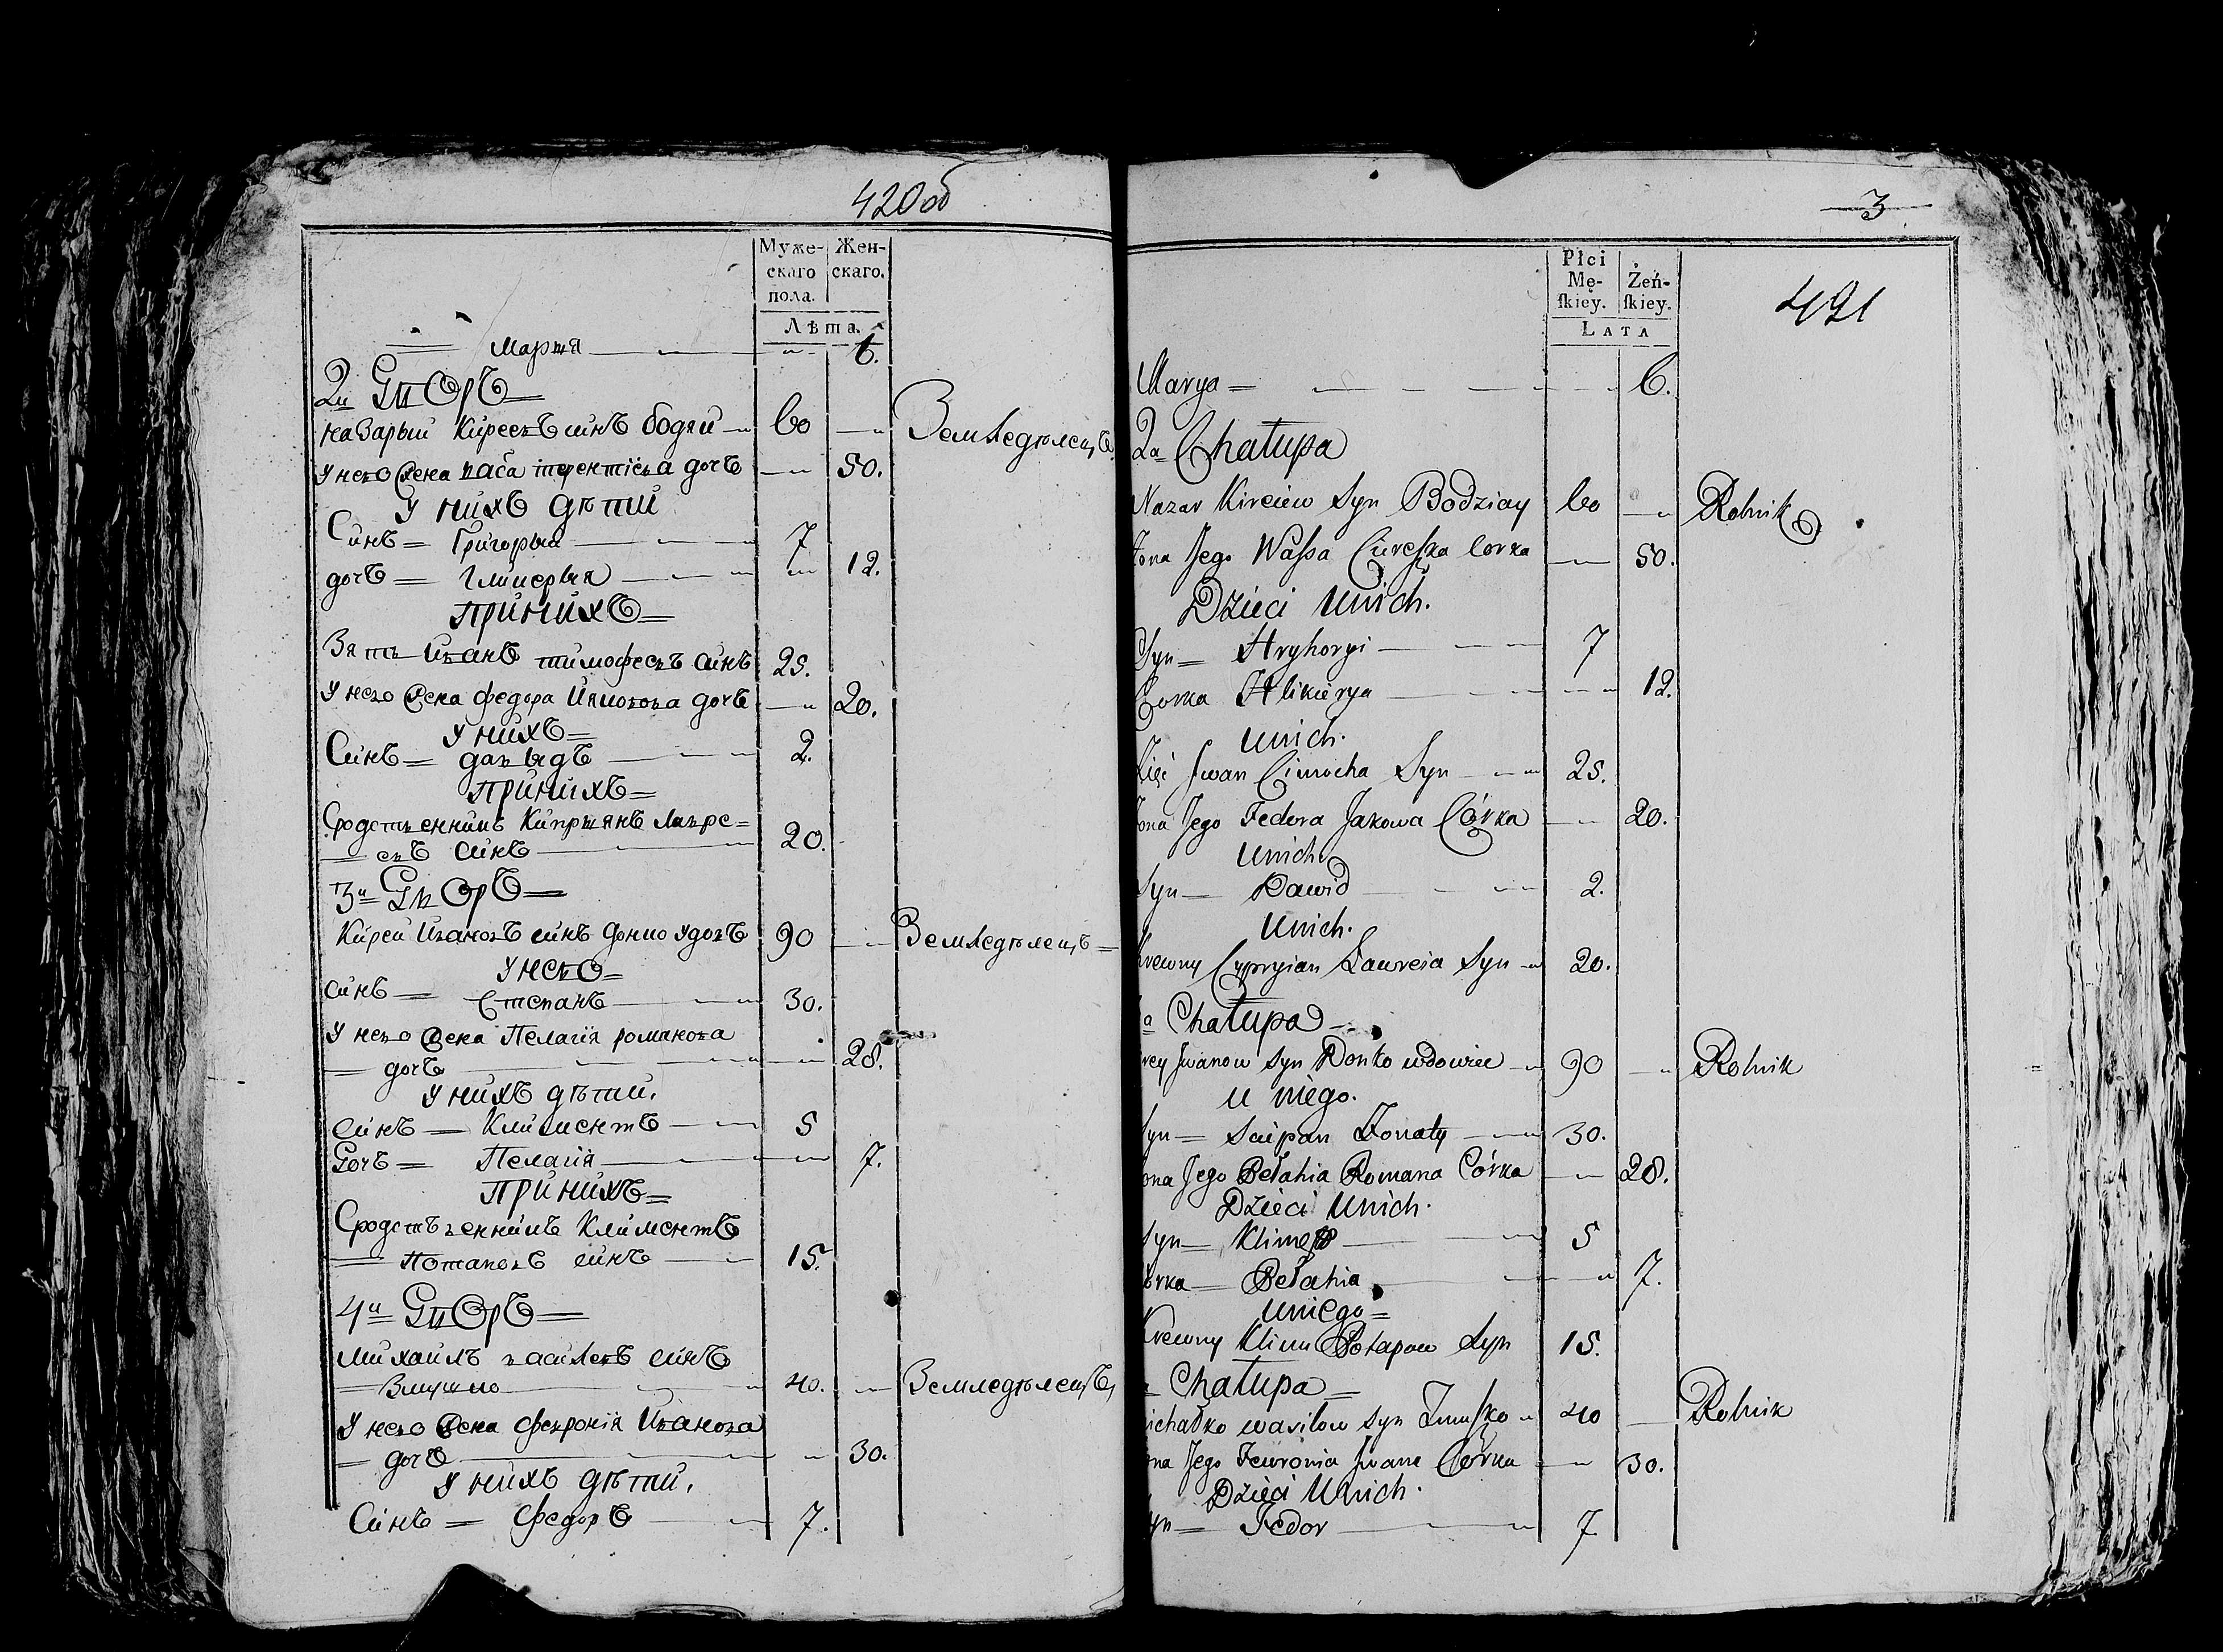 420 об
Муже-
скаго
пола.
Жен-
скаго.
Лѣта.
Марія 6.
2й Дворъ
Назарый Киреевъ синъ Бодяй 60 Земледѣлецъ
У него жена Васа Терентіева дочъ 50.
У нихъ дѣти
Синъ Григорый 7
дочъ Гликерыя 12.
При нихъ
Зять Иванъ Тимофеевъ синъ 25.
У него жена Федора Якововa дочъ 20.
У нихъ
Синъ давыдъ 2.
При нихъ
Сродственникъ Кипріянъ Лавре=
евъ синъ 20.
3й Дворъ
Кирей Ивановъ синъ донко удовъ 90 Земледѣлецъ
У него
синъ Степанъ 30.
У него жена Пелагія романова
дочъ 28.
У нихъ дѣти.
синъ Климентъ 5
Дочъ Пелагія 7.
При нихъ
Сродственникъ Климентъ
Потаповъ синъ 15.
4й Дворъ
Михаилъ василевъ синъ
Змушко 40. Земледѣлецъ
У него жена Февронія Иванова
дочъ 30.
У нихъ дѣти.
Синъ Федоръ 7.
3
421
Płci
Mę-
ſkiey.
Żeń-
ſkiey.
LATA
Marya 6.
2a Chałupa
Nazar Kireiew Syn Bodziay 60 Rolnik
Żona Jego Wassa Cereszka Corka 50.
Dzieci Unich.
Syn Hryhoryi 7
Corka Hlikierya 12.
Unich.
Zięć Jwan Cimocha Syn 25.
Żona Jego Fedora Jakowa Córka 20.
Unich
Syn Dawid 2.
Unich.
Krewny Cypryian Ławreia Syn 20.
a Chałupa
rey Jwanow Syn Donko wdowiec 90 Rolnik
u niego.
Syn Sciepan Żonaty 30.
ona Jego Pełahia Romana Córka 28.
Dzieci Unich.
Syn Klimes 5
orka Pełahia 7.
Uniego
Krewny Klim Potapow Syn 15.
Chałupa
ichałko wasilow Syn Zmuszko 40 Rolnik
ona Jego Fewronia Jwana Córka 30.
Dzieci Unich.
yn Fedor 7